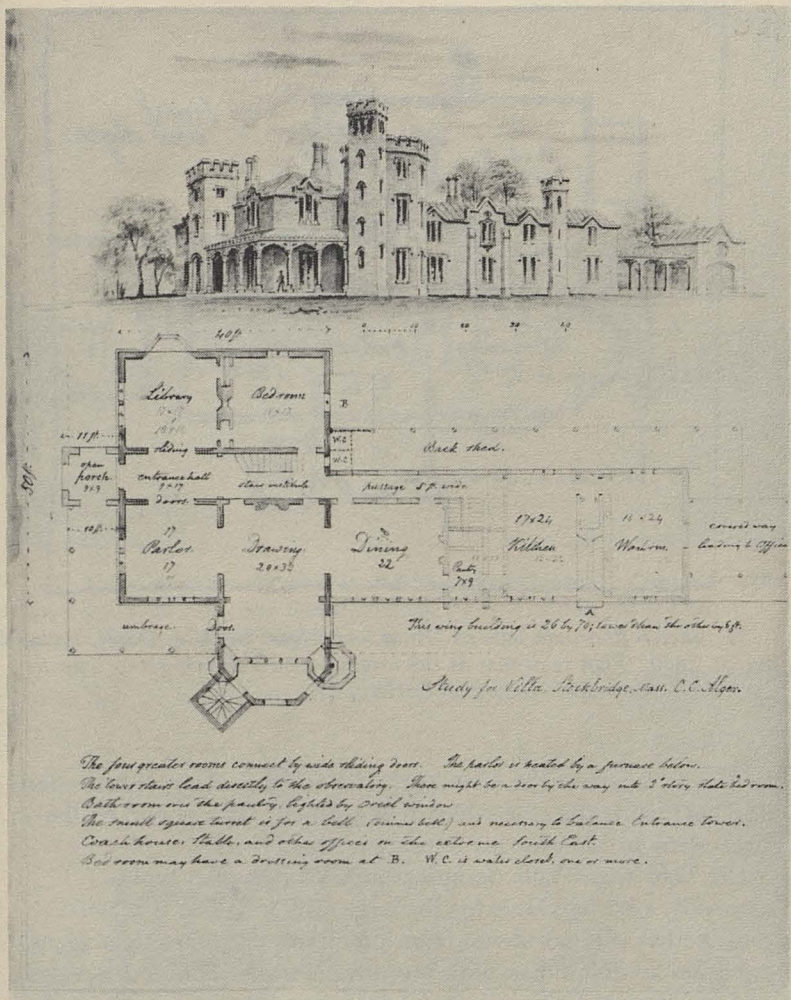 40 ft.
Library
Bedroom
B
W.C
W.C
Back shed.
11 ft.
sliding
open
porch
9 x 9
entrance hall
9 x 17
stair vestibule
passage 5 ft. wide
doors
50 ft.
10 ft.
17
Parlor
17
Drawing
20 x 32
Dining
22
Pantry
7 x 9
17 x 24
Kitchen
x 24
covered way
leading to Offices
umbrage.
Door.
This wing building is 26 by 70; lower than the other by 8 ft.
Study for Villa, Stockbridge, Mass. C. C. Alger.
The four greater rooms connect by wide sliding doors. The parlor is heated by a furnace below.
The tower stairs lead directly to the observatory. There might be a door by the way into 2d story state bedroom.
Bath room over the pantry, lighted by Oriel window
The small square turret is for a bell (dinner bell) and necessary to balance Entrance tower.
Coach house, Stable, and other offices on the extreme South East.
Bedroom may have a dressing room at B. W.C. is water closet, one or more.